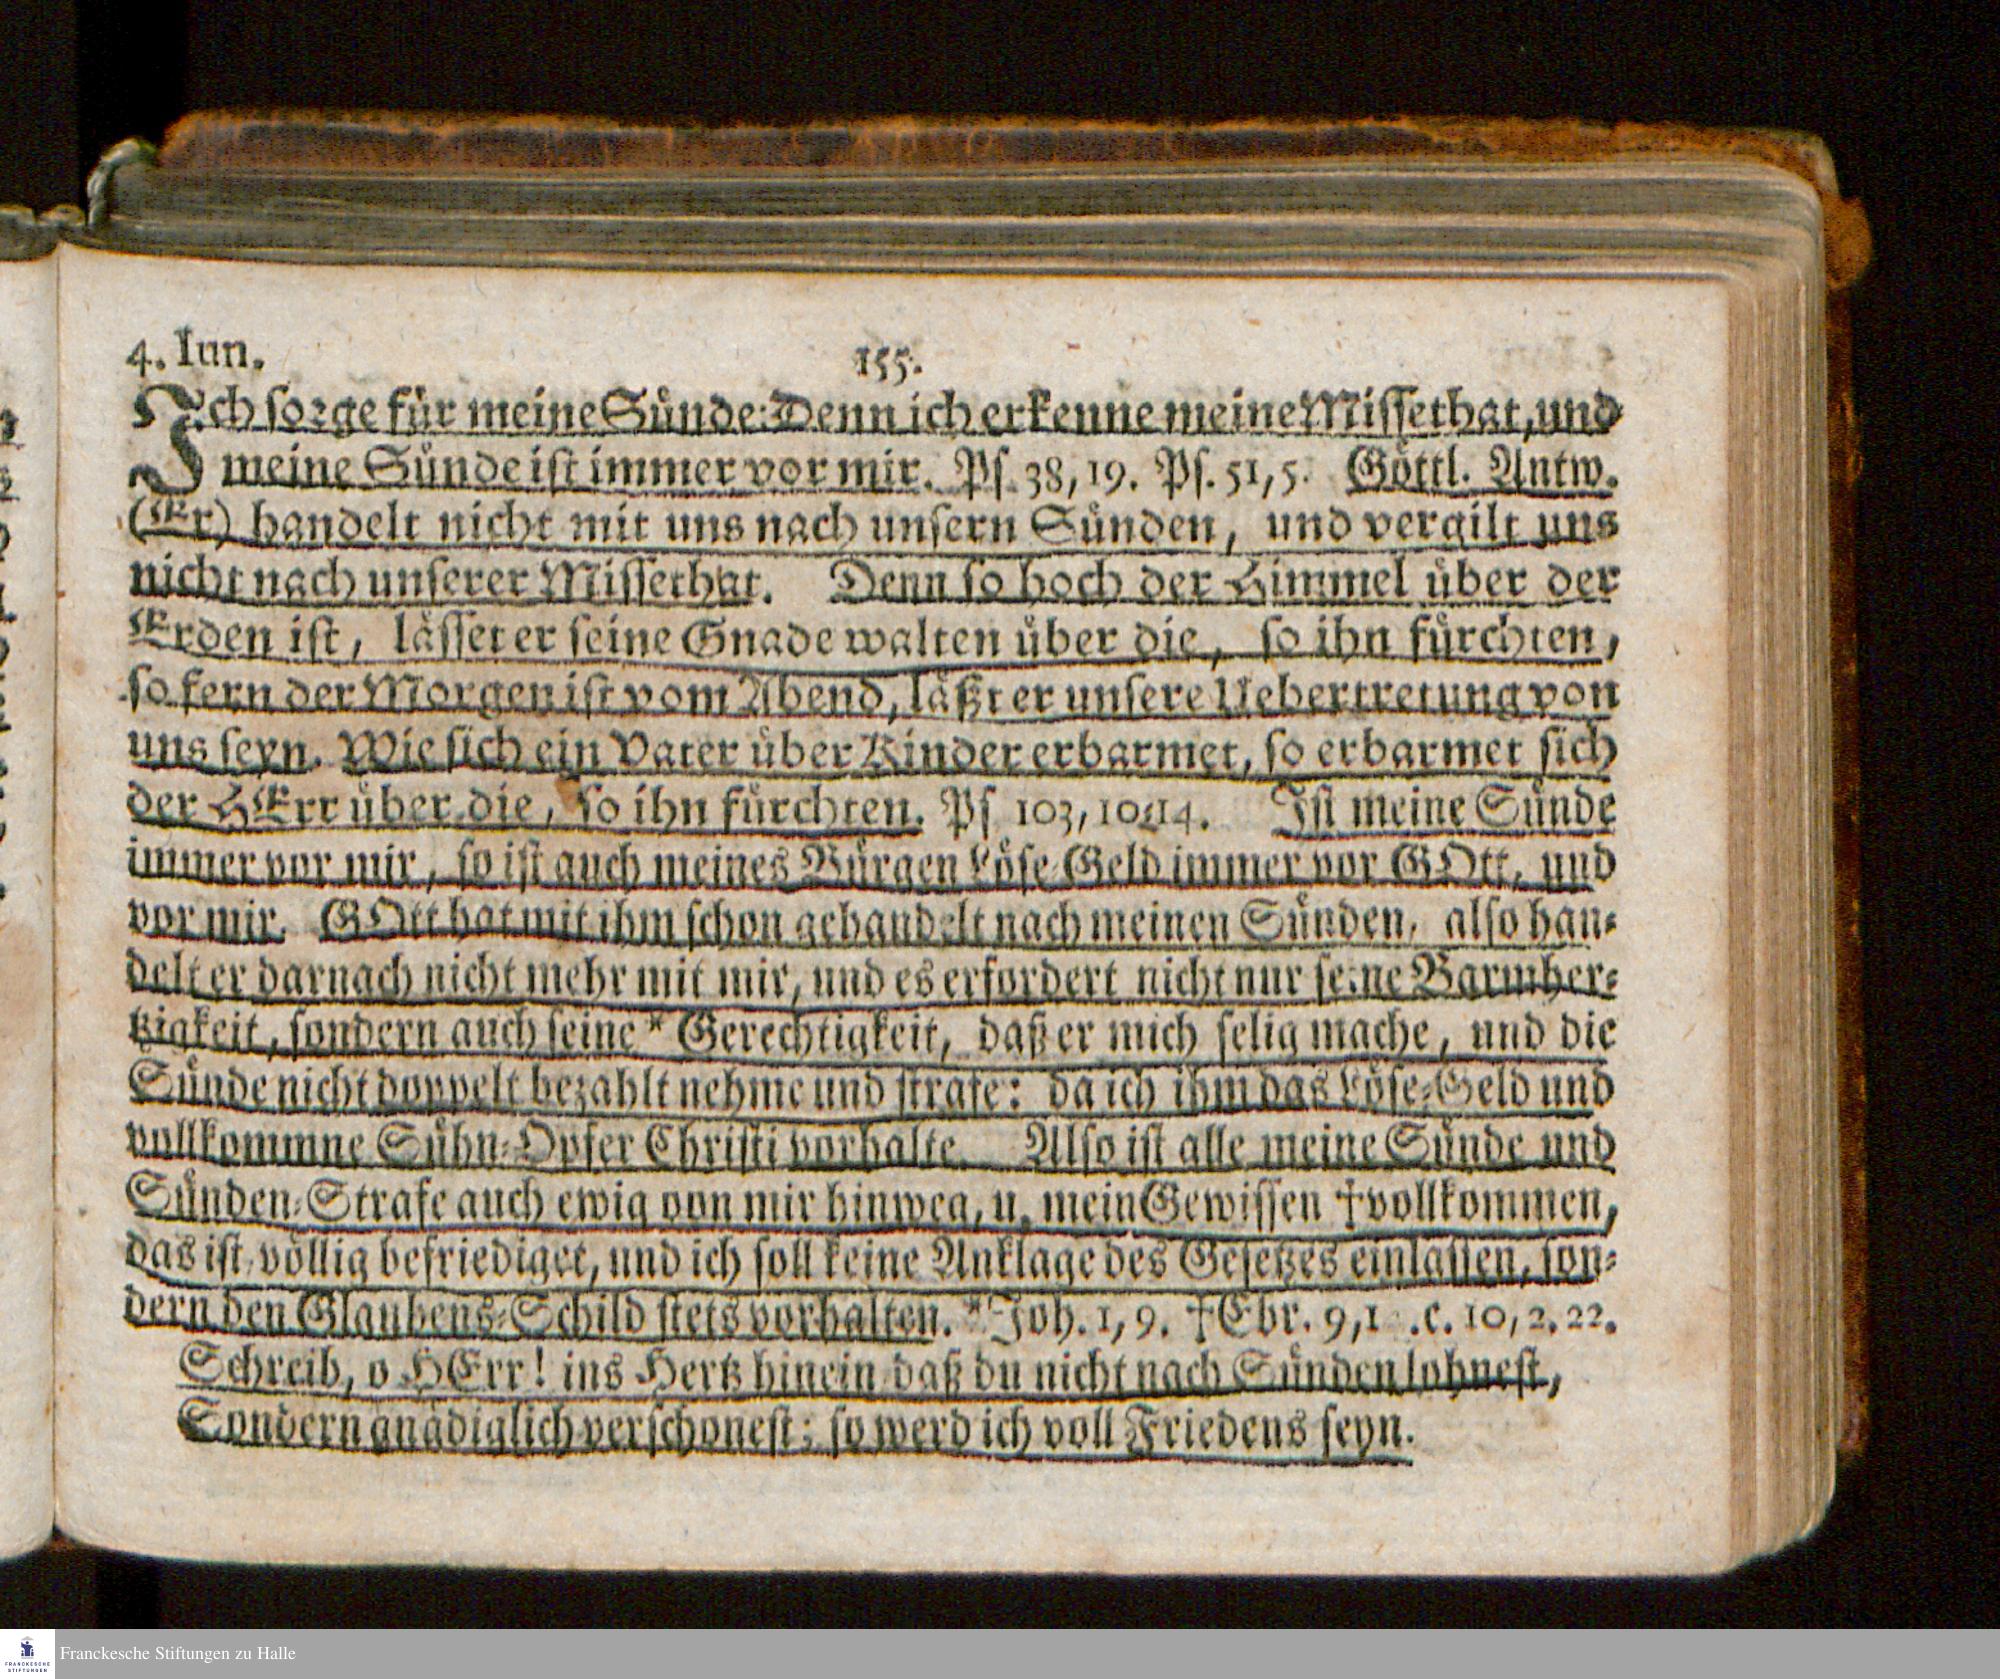 4. Iun.
155.
Ich sorge für meine Sünde: Denn ich erkenne meine Missethat, und
meine Sünde ist immer vor mir. Ps. 38, 19. Ps. 51, 5. Göttl. Antw.
(Er) handelt nicht mit uns nach unsern Sünden, und vergilt uns
nicht nach unserer Missethat. Denn so hoch der Himmel über der
Erden ist, lässet er seine Gnade walten über die, so ihn fürchten,
so fern der Morgen ist vom Abend, läßt er unsere Uebertretung von
uns seyn. Wie sich ein Vater über Kinder erbarmet, so erbarmet sich
der HErr über die, so ihn fürchten. Ps 103, 10-14. Ist meine Sünde
immer vor mir, so ist auch meines Bürgen Löse-Geld immer vor GOtt, und
vor mir. GOtt hat mit ihm schon gehandelt nach meinen Sünden, also han-
delt er darnach nicht mehr mit mir, und es erfordert nicht nur seine Barmher-
tzigkeit, sondern auch seine * Gerechtigkeit, daß er mich selig mache, und die
Sünde nicht doppelt bezahlt nehme und strafe: da ich ihm das Löse-Geld und
vollkommne Sühn-Opfer Christi vorhalte. Also ist alle meine Sünde und
Sünden-Strafe auch ewig von mir hinweg, u. mein Gewissen † vollkommen,
das ist, völlig befriediget, und ich soll keine Anklage des Gesetzes einlassen, son-
dern den Glaubens-Schild stets vorhalten. * Joh. 1, 9. † Ebr. 9, c. 10, 2. 22.
Schreib, o HErr! ins Hertz hinein daß du nicht nach Sünden lohnest,
Sondern gnädiglich verschonest; so werd ich voll Friedens seyn.
FRANCKESCHE
STIFTUNGEN
Franckesche Stiftungen zu Halle